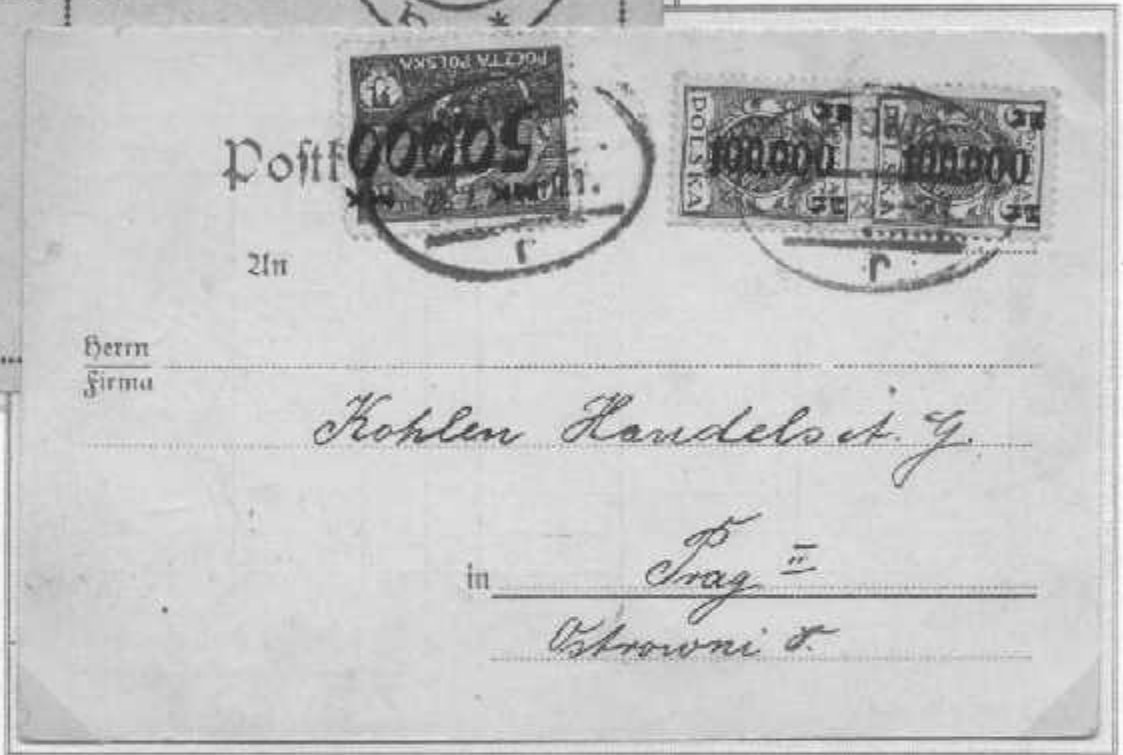 POCZTA POLSKA
50.000
POLSKA 100.000 100.000
Postk
An
Herrn
Firma
Kohlen Handels A. G.
in Prag II
Ostrowni